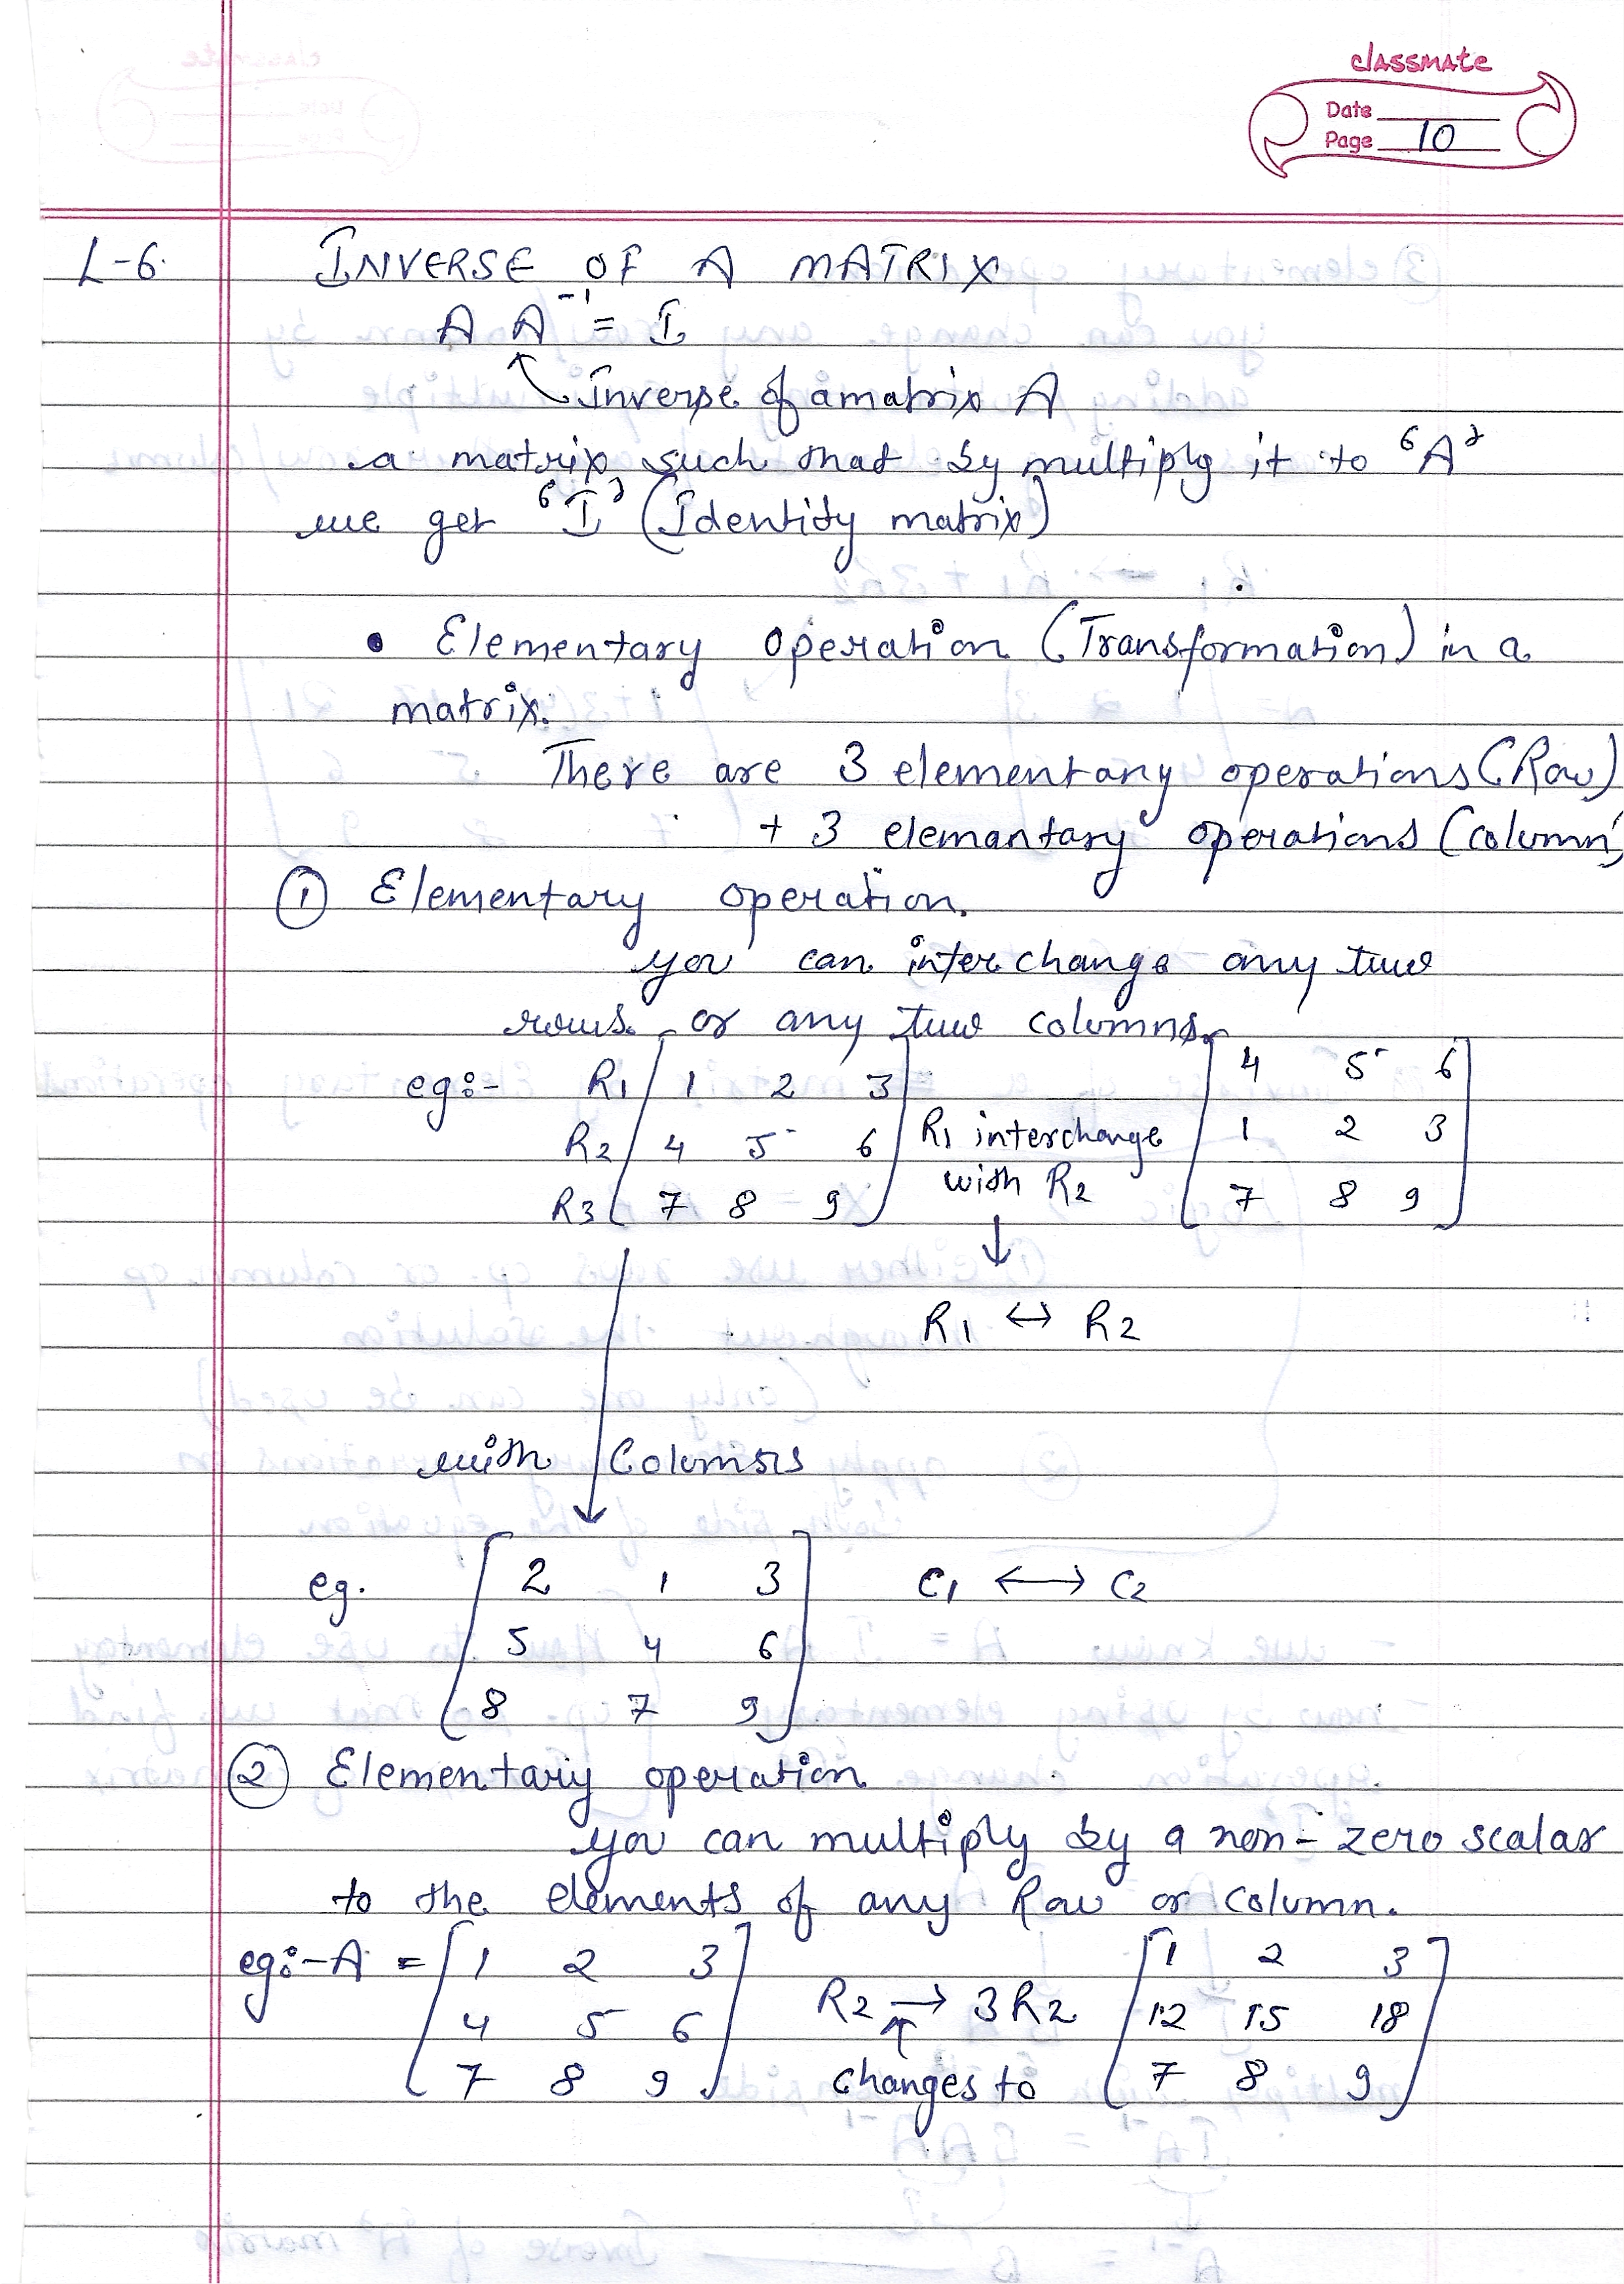 classmate
Date
Page 10
L-6. INVERSE OF A MATRIX
A A⁻¹ = I
Inverse of a matrix A
a matrix such that by multiply it to 'A'
we get 'I' (Identity matrix)
• Elementary operation (Transformation) in a
matrix.
There are 3 elementary operations (Row)
+ 3 elemantary operations (column)
① Elementary operation.
you can interchange any two
rows or any two columns.
eg:- R1 [ 1 2 3 ] [ 4 5 6 ]
R2 [ 4 5 6 ] R1 interchange [ 1 2 3 ]
R3 [ 7 8 9 ] with R2 [ 7 8 9 ]
↓
R1 ↔ R2
with Columns
eg. [ 2 1 3 ] C1 ↔ C2
[ 5 4 6 ]
[ 8 7 9 ]
② Elementary operation
you can multiply by a non-zero scalar
to the elements of any Row or column.
eg:- A = [ 1 2 3 ] [ 1 2 3 ]
[ 4 5 6 ] R2 → 3R2 [ 12 15 18 ]
[ 7 8 9 ] ↑ changes to [ 7 8 9 ]